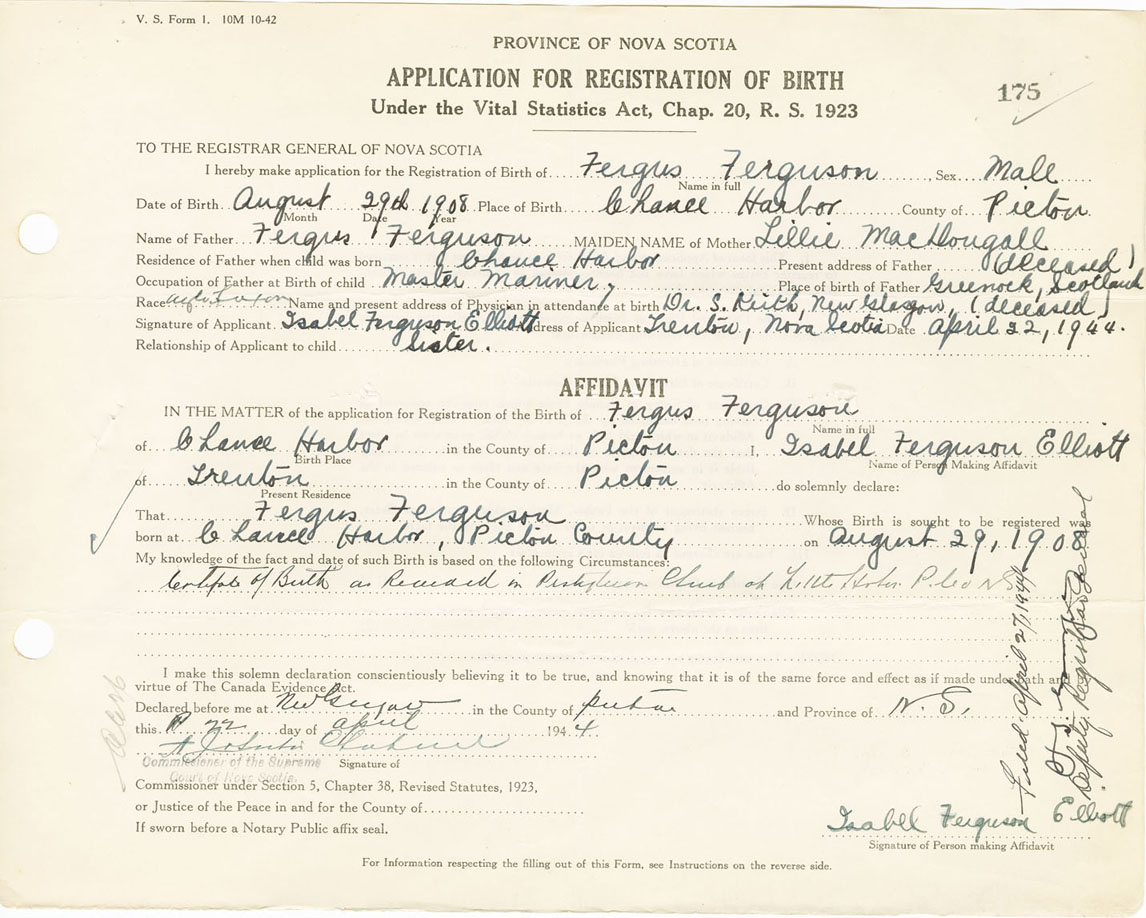 V. S. Form 1. 10M 10-42
PROVINCE OF NOVA SCOTIA
APPLICATION FOR REGISTRATION OF BIRTH
175
Under the Vital Statistics Act, Chap. 20, R. S. 1923
TO THE REGISTRAR GENERAL OF NOVA SCOTIA
I hereby make application for the Registration of Birth of Fergus Ferguson, Sex Male
Name in full
Date of Birth August 29th 1908 Place of Birth Chance Harbor County of Pictou
Month Date Year
Name of Father Fergus Ferguson MAIDEN NAME of Mother Lillie MacDougall
Residence of Father when child was born Chance Harbor Present address of Father (deceased)
Occupation of Father at Birth of child Master Mariner, Place of birth of Father Greenock, Scotland
Race Name and present address of Physician in attendance at birth Dr. S. Keith, New Glasgow, (deceased)
Signature of Applicant Isabel Ferguson Elliott Address of Applicant Trenton, Nova Scotia Date April 22, 1944.
Relationship of Applicant to child Sister.
AFFIDAVIT
IN THE MATTER of the application for Registration of the Birth of Fergus Ferguson
Name in full
of Chance Harbor in the County of Pictou I, Isabel Ferguson Elliott
Birth Place Name of Person Making Affidavit
of Trenton in the County of Pictou do solemnly declare:
Present Residence
That Fergus Ferguson Whose Birth is sought to be registered was
born at Chance Harbor, Pictou County on August 29, 1908
My knowledge of the fact and date of such Birth is based on the following Circumstances:
Certificate of Birth as Recorded in Presbyterian Church at Little Harbor P. Co N S
I make this solemn declaration conscientiously believing it to be true, and knowing that it is of the same force and effect as if made under oath and
virtue of The Canada Evidence Act.
Declared before me at New Glasgow in the County of Pictou and Province of N. S.
this 22 day of April 1944.
Commissioner of the Supreme
Court of Nova Scotia.
Signature of
Commissioner under Section 5, Chapter 38, Revised Statutes, 1923,
or Justice of the Peace in and for the County of
If sworn before a Notary Public affix seal.
Isabel Ferguson Elliott
Signature of Person making Affidavit
For Information respecting the filling out of this Form, see Instructions on the reverse side.
Filed April 27, 1944
Deputy Registrar General